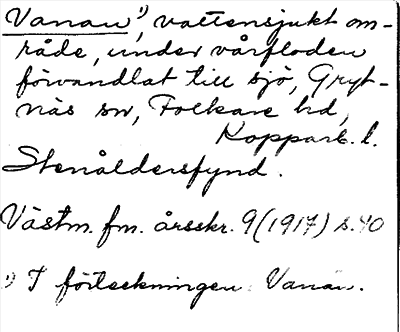 Vanan¹⁾, vattensjukt om-
råde, under vårfloden
förvandlat till sjö, Gryt-
näs sn, Folkare hd,
Kopparb. l.
Stenåldersfynd.
Västm. fm. årsskr. 9 (1917) s. 40
¹⁾ I förteckningen: Vanån.